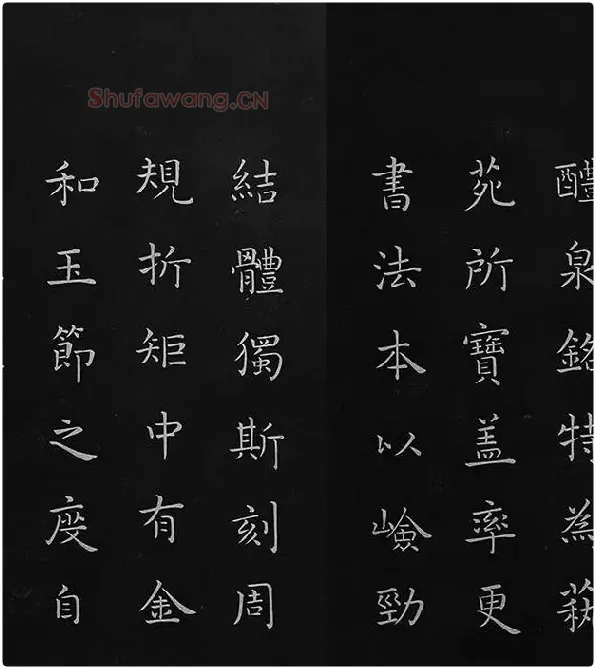 Shufawang.CN
醴泉銘特為
苑所寶盖率更
書法本以嶮勁
結體獨斯刻周
規折矩中有金
和玉節之度自